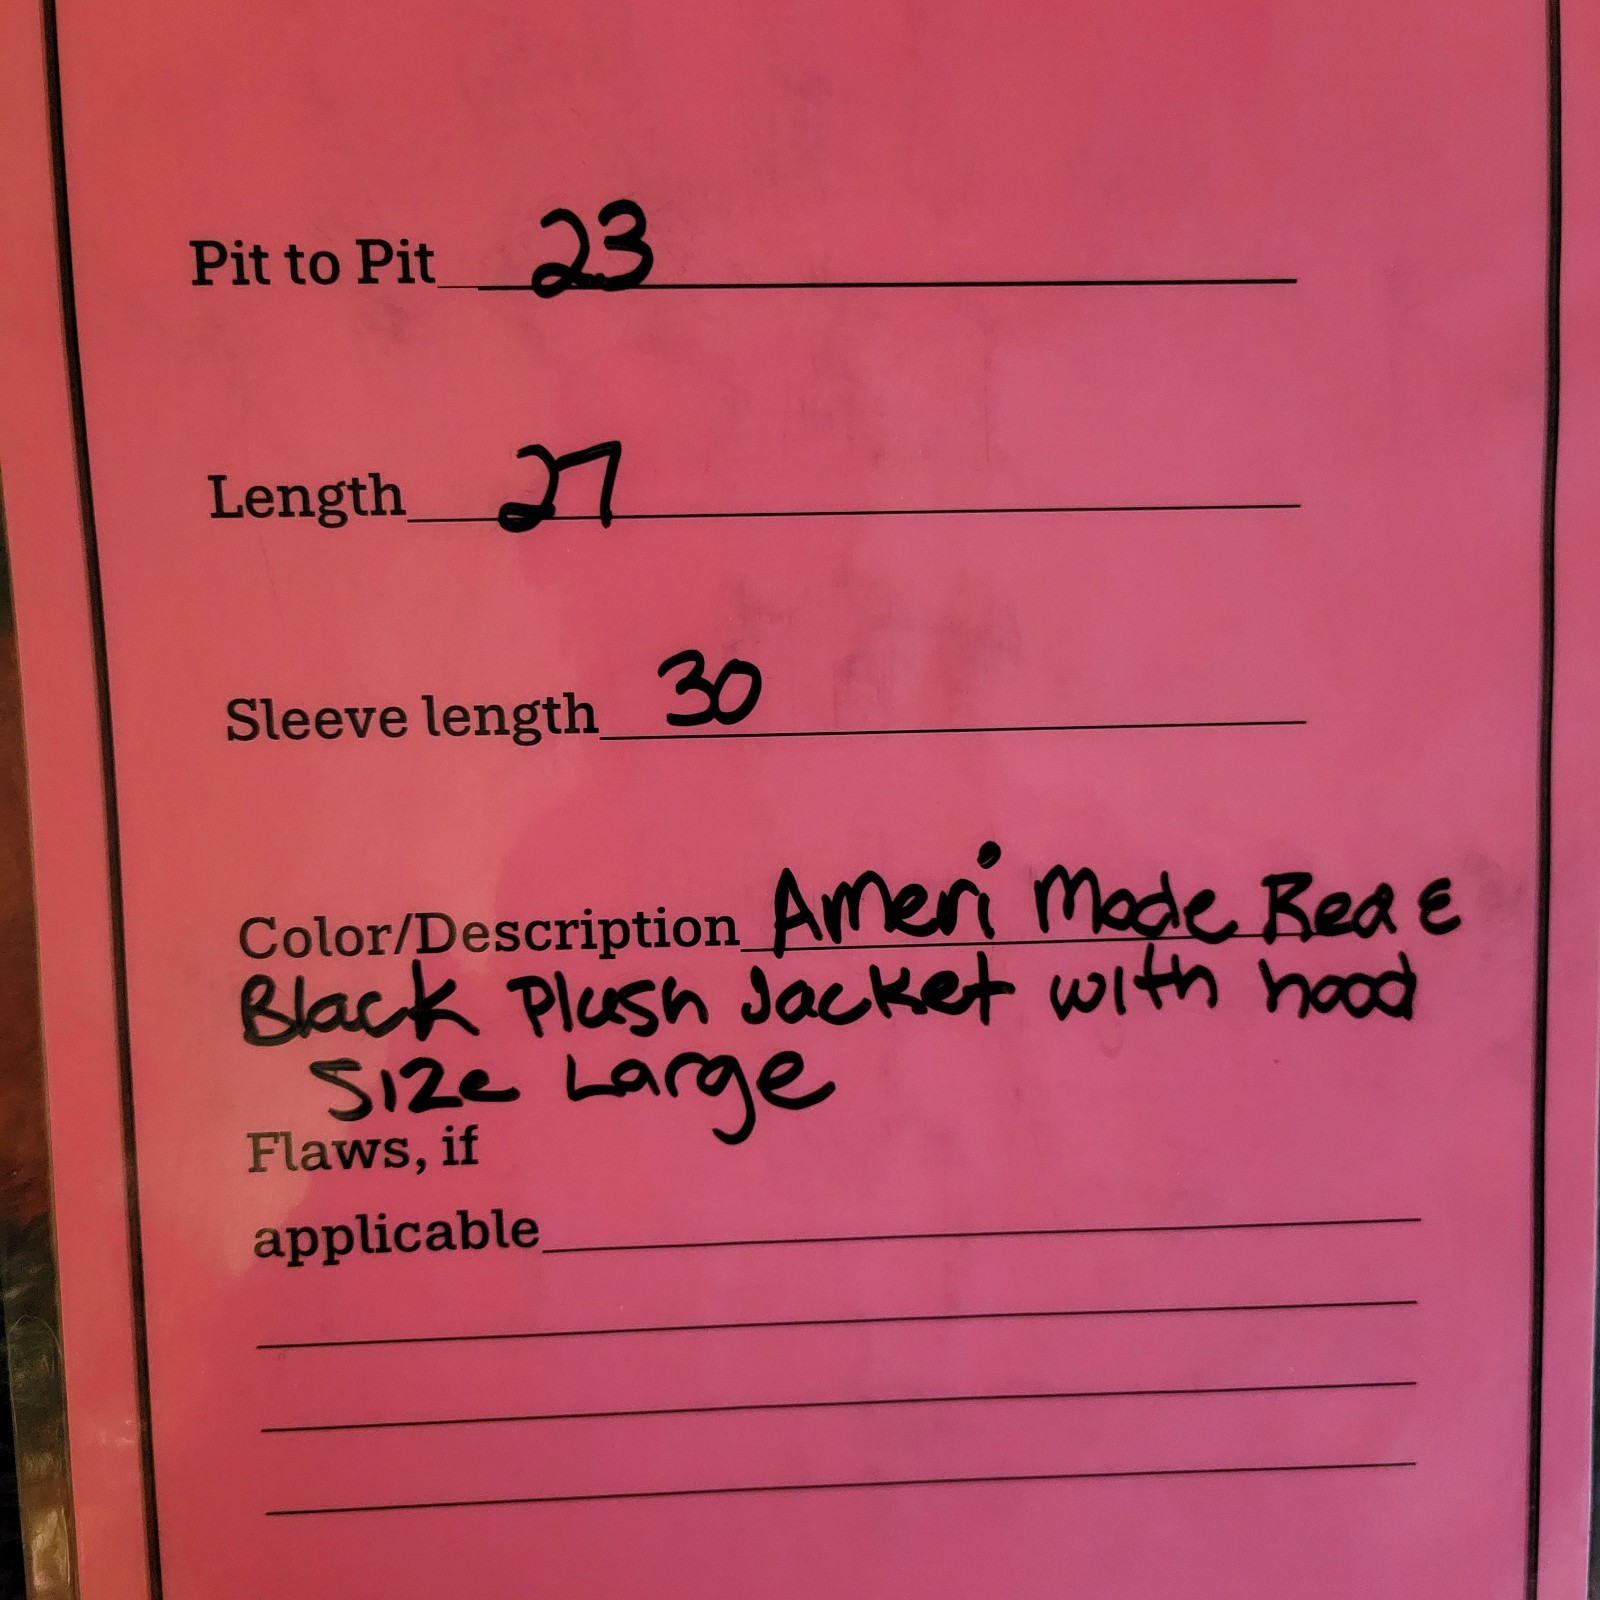 Pit to Pit 23
Length 27
Sleeve length 30
Color/Description Ameri Mode Red &
Black Plush Jacket with hood
Size Large
Flaws, if
applicable